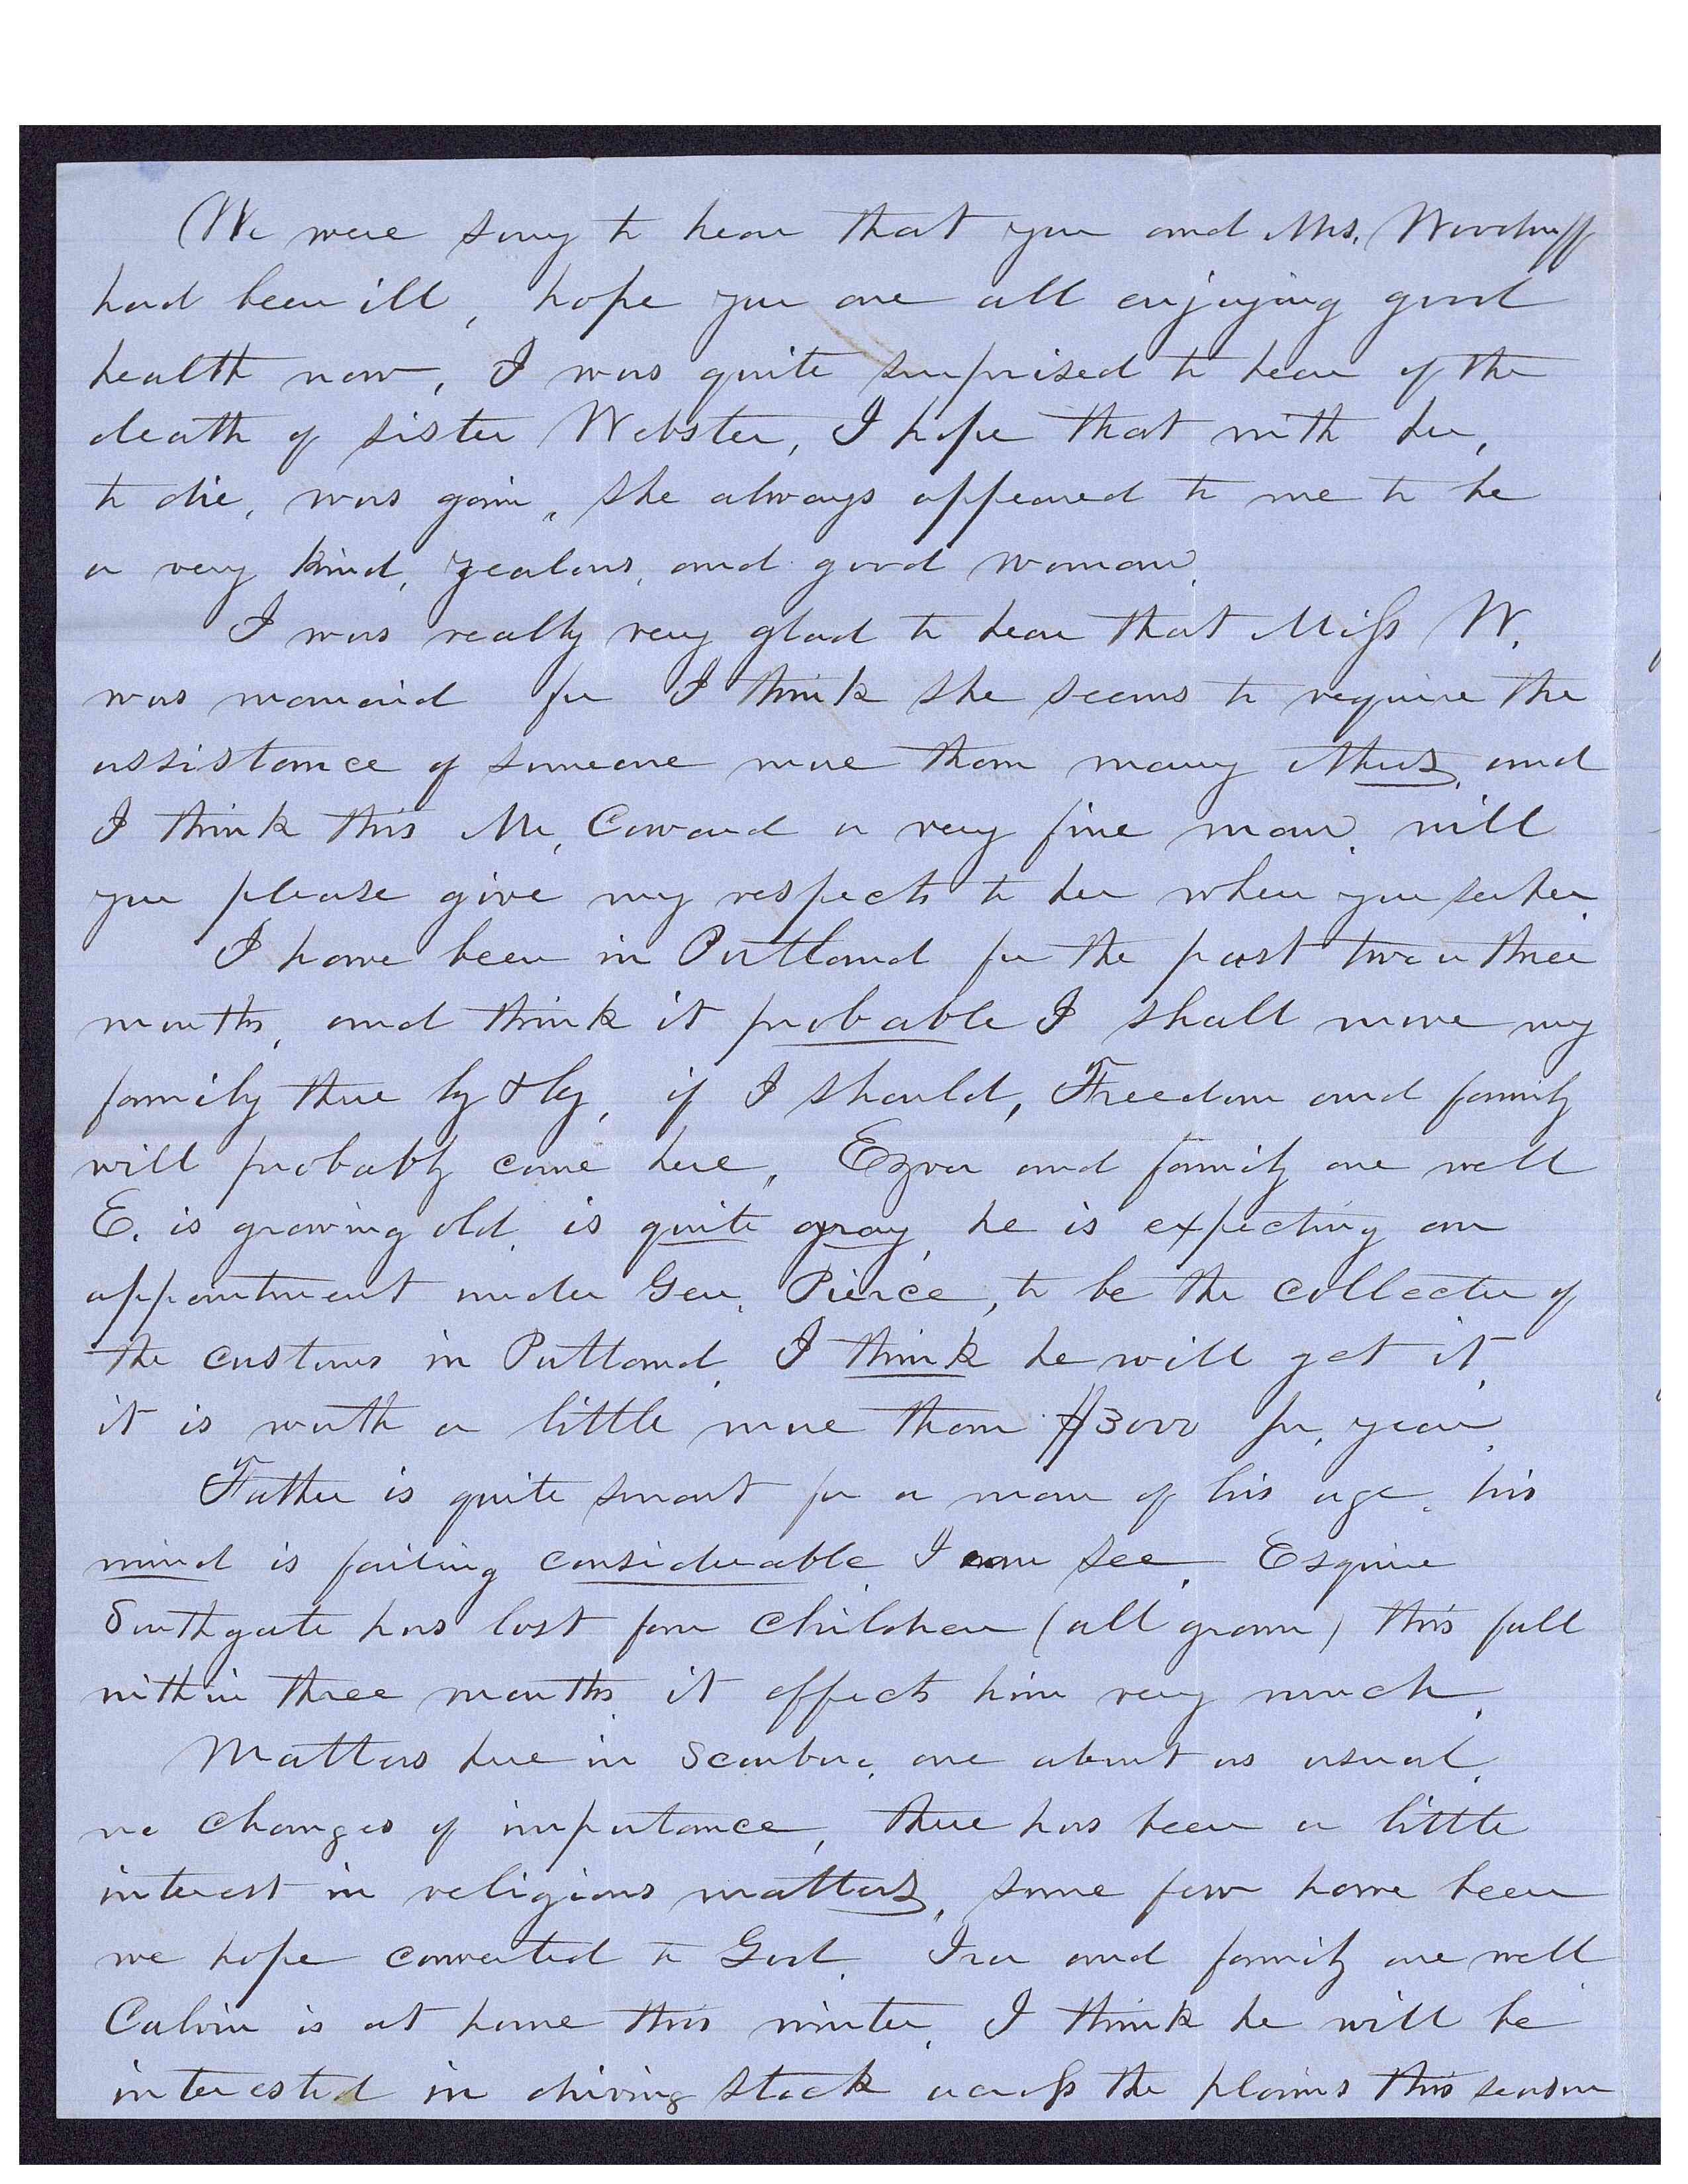 We were sorry to hear that you and Mrs. Woodruff
had been ill, hope you are all enjoying good
health now, I was quite surprised to hear of the
death of sister Webster, I hope that with her,
to die, was gain, she always appeared to me to be
a very kind, zealous, and good woman.
I was really very glad to hear that Miss W.
was married for I think she seems to require the
assistance of someone more than many others, and
I think this Mr, Coward a very fine man, will
you please give my respects to her when you see her
I have been in Portland for the past two or three
months, and think it probable I shall move my
family there by & by, if I should, Freedom and family
will probably come here, Ezra and family are well
E. is growing old, is quite gray, he is expecting an
appointment under Gen. Pierce, to be the collector of
the customs in Portland, I think he will get it,
it is worth a little more than $3000 pr. year.
Father is quite smart for a man of his age, his
mind is failing considerable I can see. Esquire
Southgate has lost four children (all grown) this fall
within three months, it effects him very much.
Matters here in Scarboro, are about as usual,
no changes of importance, there has been a little
interest in religious matters, some few have been
we hope converted to God. Ira and family are well
Calvin is at home this winter, I think he will be
interested in driving stock across the plains this season